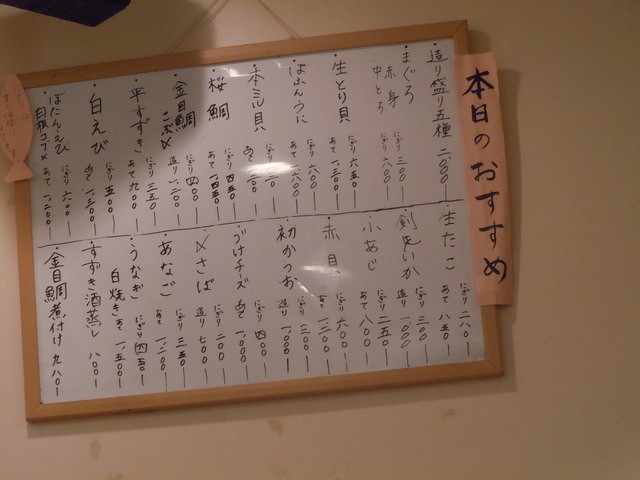 本日のおすすめ
・造り盛り五種 二〇〇〇ー
・まぐろ
赤身 にぎり 三〇〇ー
中とろ にぎり 六〇〇ー
・生とり貝 にぎり 六五〇ー
あて 一、三〇〇ー
・ばふんうに にぎり 六〇〇ー
あて 一、八〇〇ー
・本ミル貝 にぎり
あて
・桜鯛 にぎり 四五〇ー
あて 一、四五〇ー
・金目鯛 こぶ〆 にぎり 四〇〇ー
造り 一、二〇〇ー
・平すずき にぎり 三五〇ー
あて 九〇〇ー
・白えび にぎり 五〇〇ー
あて 一、三〇〇ー
・ぼたんえび にぎり 六〇〇ー
白板コブ〆 あて 一、二〇〇ー
・生たこ にぎり 二八〇ー
あて 八五〇ー
・剣先いか にぎり 三〇〇ー
造り 一、〇〇〇ー
・小あじ にぎり 二五〇ー
あて 八〇〇ー
・赤貝 にぎり 六〇〇ー
あて 一、二〇〇ー
・初かつお にぎり 三〇〇ー
造り 一、〇〇〇ー
・づけチーズ にぎり 四〇〇ー
あて 一、〇〇〇ー
・〆さば にぎり 二〇〇ー
造り 七〇〇ー
・あなご にぎり 三五〇ー
あて 一、二〇〇ー
・うなぎ にぎり 四五〇ー
白焼き あて 一、五〇〇ー
・すずき酒蒸し 八〇〇ー
・金目鯛煮付け 九八〇ー